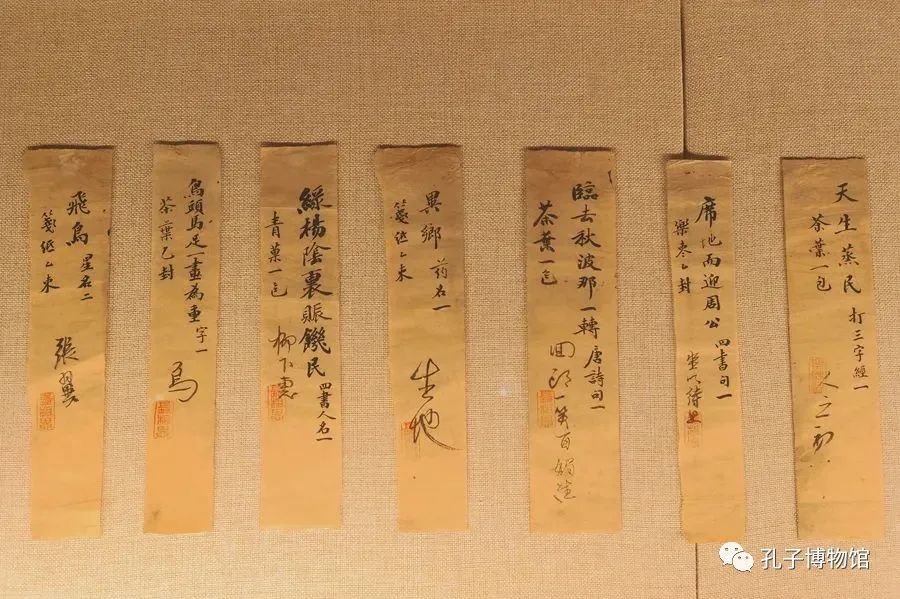 天生蒸民 打三字經一
茶葉一包
人之初
席地而迎周公 四書句一
乙封
坐以待旦
臨去秋波那一轉 唐詩句一
茶葉一包
回頭一笑百媚
異鄉 药名一
箋紙乙束
生地
綠楊陰裏賑饑民 四書人名一
青菓一包
柳下惠
頭馬足一畫為重 字一
茶葉乙封
飛鳥 星名二
箋紙乙束
張翼
孔子博物馆